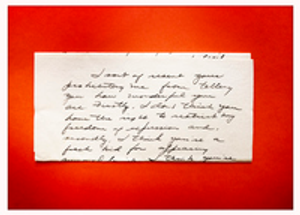 I sort of resent your
prohibiting me from telling
you how wonderful you
are. Firstly, I don't think you
have the right to restrict my
freedom of expression and,
secondly, I think you're a
fink kid for
I think you're